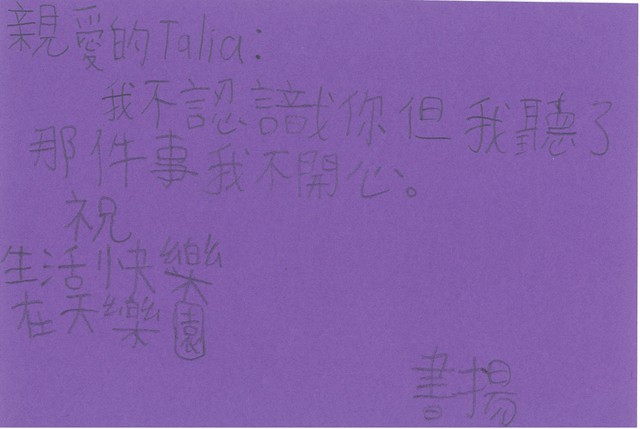 親愛的Talia:
我不認識你但我聽了
那件事我不開心。
祝
生活快樂
在天樂園
書揚